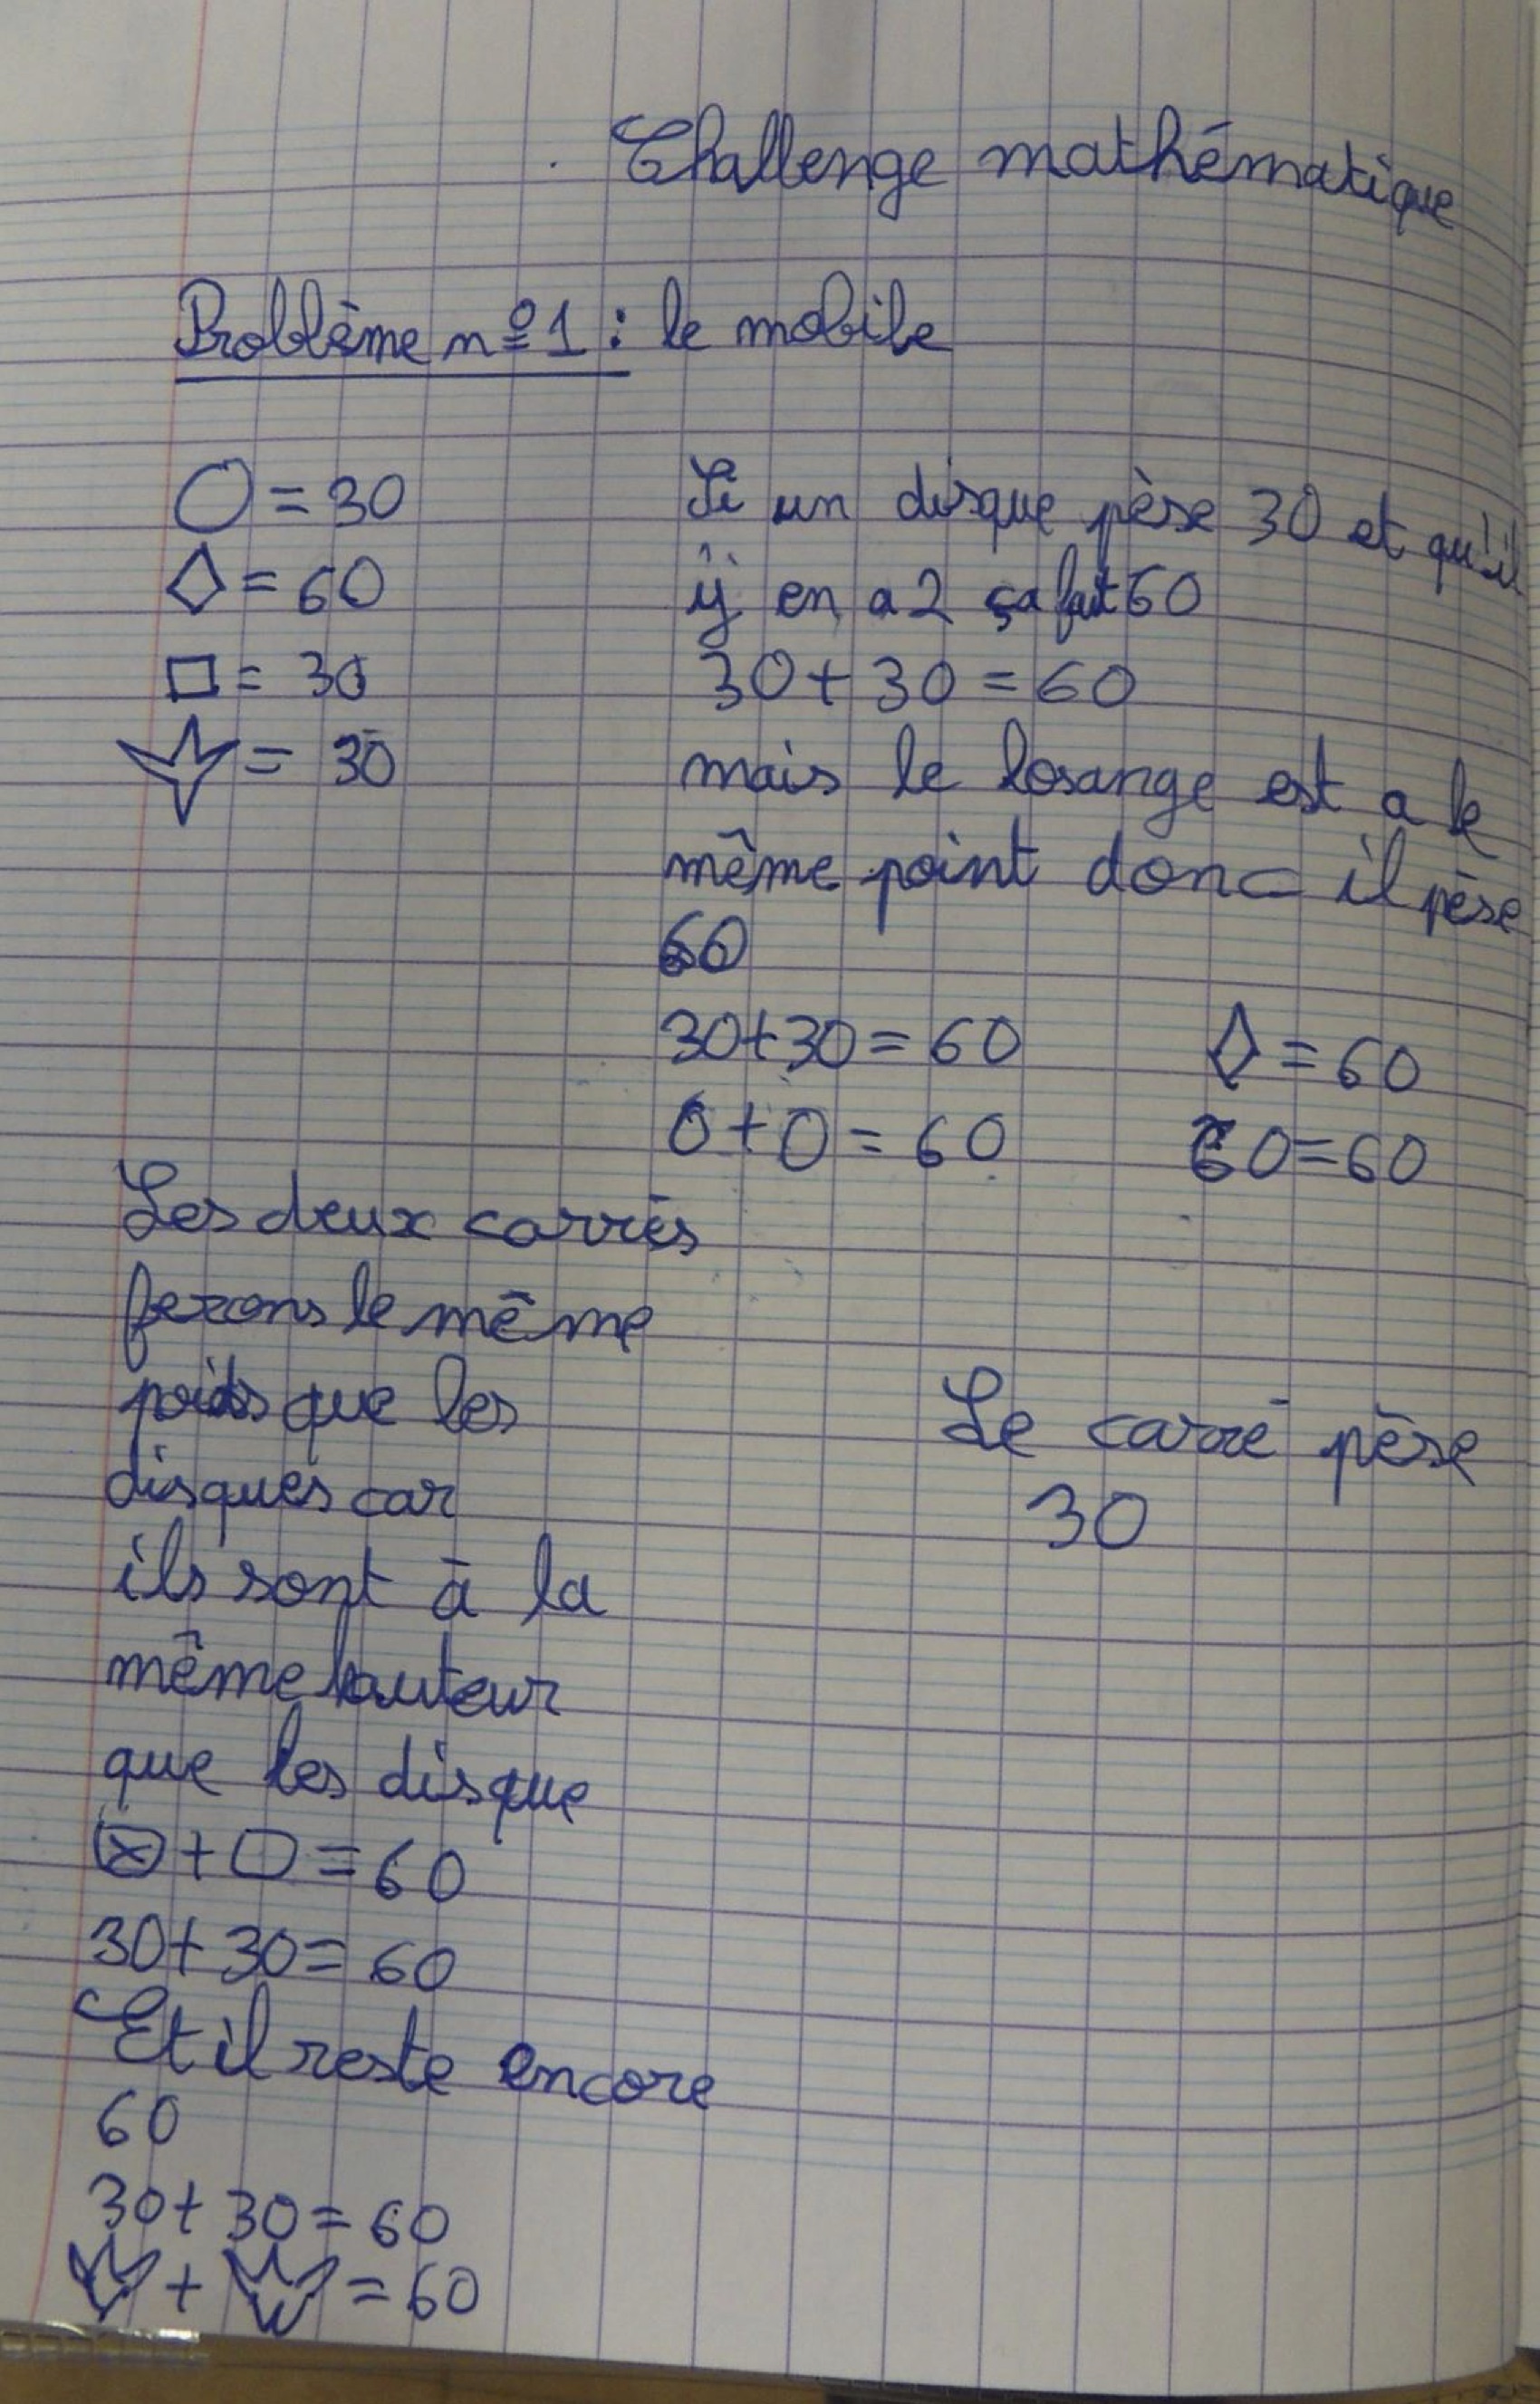 Challenge mathématique
Problème n°1 : le mobile
○ = 30
◇ = 60
□ = 30
= 30
Si un disque pèse 30 et qu'il
y en a 2 ça fait 60
30 + 30 = 60
mais le losange est a le
même point donc il pèse
60
30+30 = 60
◇ = 60
0 + 0 = 60
60=60
Les deux carrés
ferons le même
poids que les
disques car
ils sont à la
même hauteur
que les disque
□ + □ = 60
30+ 30= 60
Le carré pèse
30
Et il reste encore
60
30+ 30= 60
+ = 60